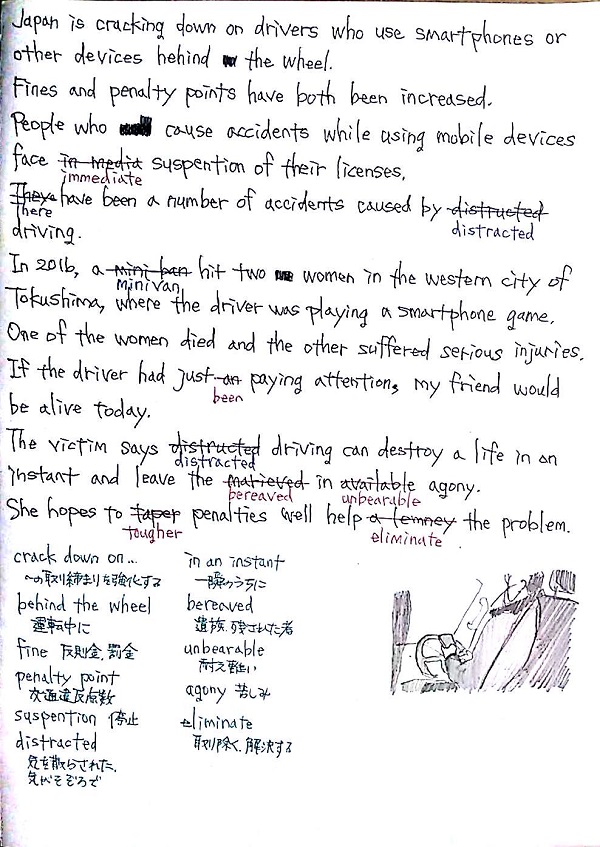 Japan is cracking down on drivers who use smartphones or
other devices behind the wheel.
Fines and penalty points have both been increased.
People who cause accidents while using mobile devices
face in media suspention of their licenses.
immediate
They have been a number of accidents caused by distructed
There
distracted
driving.
In 2016, a mini ban hit two women in the western city of
minivan
Tokushima, where the driver was playing a smartphone game.
One of the women died and the other suffered serious injuries.
If the driver had just an paying attention, my friend would
been
be alive today.
The victim says distructed driving can destroy a life in an
distracted
instant and leave the matrieved in available agony.
bereaved unbearable
She hopes to taper penalties well help a lemney the problem.
tougher eliminate
crack down on...
〜の取り締まりを強化する
behind the wheel
運転中に
fine 反則金、罰金
penalty point
交通違反点数
suspention 停止
distracted
気を散らされた、
気がそぞろで
in an instant
一瞬のうちに
bereaved
遺族、残された者
unbearable
耐え難い
agony 苦しみ
eliminate
取り除く、解決する